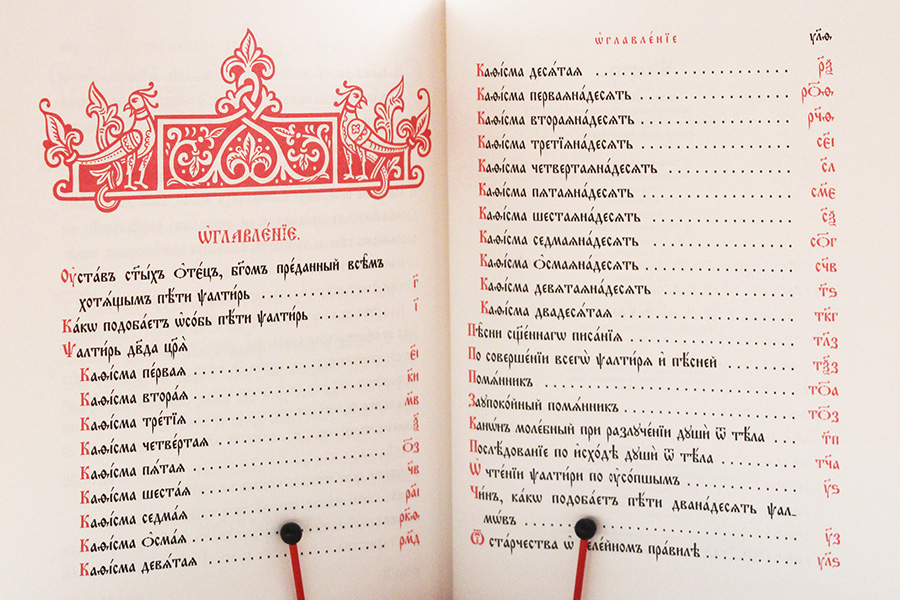 Ѡ҆ГЛАВЛЕ́НЇЕ.
Оу҆ста́въ ст҃ы́хъ ѻ҆те́цъ, бг҃омъ пре́данный всѣ̑мъ
хотѧ́щымъ пѣ́ти ѱалти́рь . . . . . . . . . . . . г҃
Ка́кѡ подоба́етъ ѡ҆со́бь пѣ́ти ѱалти́рь . . . . . . . . і҃
Ѱалти́рь дв҃да цр҃ѧ̀
Каѳі́сма пе́рваѧ . . . . . . . . . . . . . . . . . . е҃і
Каѳі́сма втора́ѧ . . . . . . . . . . . . . . . . . . к҃и
Каѳі́сма тре́тїѧ . . . . . . . . . . . . . . . . . . м҃в
Каѳі́сма четве́ртаѧ . . . . . . . . . . . . . . . . ѯ҃
Каѳі́сма пѧ́таѧ . . . . . . . . . . . . . . . . . . о҃з
Каѳі́сма шеста́ѧ . . . . . . . . . . . . . . . . . . ч҃в
Каѳі́сма седма́ѧ . . . . . . . . . . . . . . . . . . ра҃і
Каѳі́сма ѻ҆сма́ѧ . . . . . . . . . . . . . . . . . . рк҃ѳ
Каѳі́сма девѧ́таѧ . . . . . . . . . . . . . . . . . рм҃д
ѡ҆главле́нїе ул҃ѳ
Каѳі́сма десѧ́таѧ . . . . . . . . . . . . . . . . . рѯ҃
Каѳі́сма перваѧна́десѧть . . . . . . . . . . . . . ро҃ѳ
Каѳі́сма втораѧна́десѧть . . . . . . . . . . . . . рч҃ѳ
Каѳі́сма третїѧна́десѧть . . . . . . . . . . . . . се҃і
Каѳі́сма четвертаѧна́десѧть . . . . . . . . . . . с҃л
Каѳі́сма пѧтаѧна́десѧть . . . . . . . . . . . . . см҃е
Каѳі́сма шестаѧна́десѧть . . . . . . . . . . . . . сѯ҃
Каѳі́сма седмаѧна́десѧть . . . . . . . . . . . . . со҃г
Каѳі́сма ѻ҆смаѧна́десѧть . . . . . . . . . . . . . сч҃в
Каѳі́сма девѧтаѧна́десѧть . . . . . . . . . . . . т҃ѕ
Каѳі́сма двадесѧ́таѧ . . . . . . . . . . . . . . . тк҃г
Пѣ̑сни сщ҃е́ннагѡ писа́нїѧ . . . . . . . . . . . . . тл҃з
По соверше́нїи всегѡ̀ ѱалтирѧ̀ и҆ пѣ́сней . . . . . . тѯ҃з
Помѧ́нникъ . . . . . . . . . . . . . . . . . . . . . то҃а
Заупоко́йный помѧ́нникъ . . . . . . . . . . . . . . то҃з
Канѡ́нъ моле́бный при разлуче́нїи дꙋшѝ ѿ тѣ́ла . . . т҃п
Послѣ́дованїе по и҆схо́дѣ дꙋшѝ ѿ тѣ́ла . . . . . . . тч҃а
Ѡ҆ чте́нїи ѱалти́ри по ᲂу҆со́пшымъ . . . . . . . . . . у҃ѕ
Чи́нъ, ка́кѡ подоба́етъ пѣ́ти двана́десѧть ѱал-
мѡ́въ . . . . . . . . . . . . . . . . . . . . . . . у҃з
Ѿ ста́рчества ѡ҆ келе́йномъ пра́вилѣ . . . . . . . . ул҃ѕ